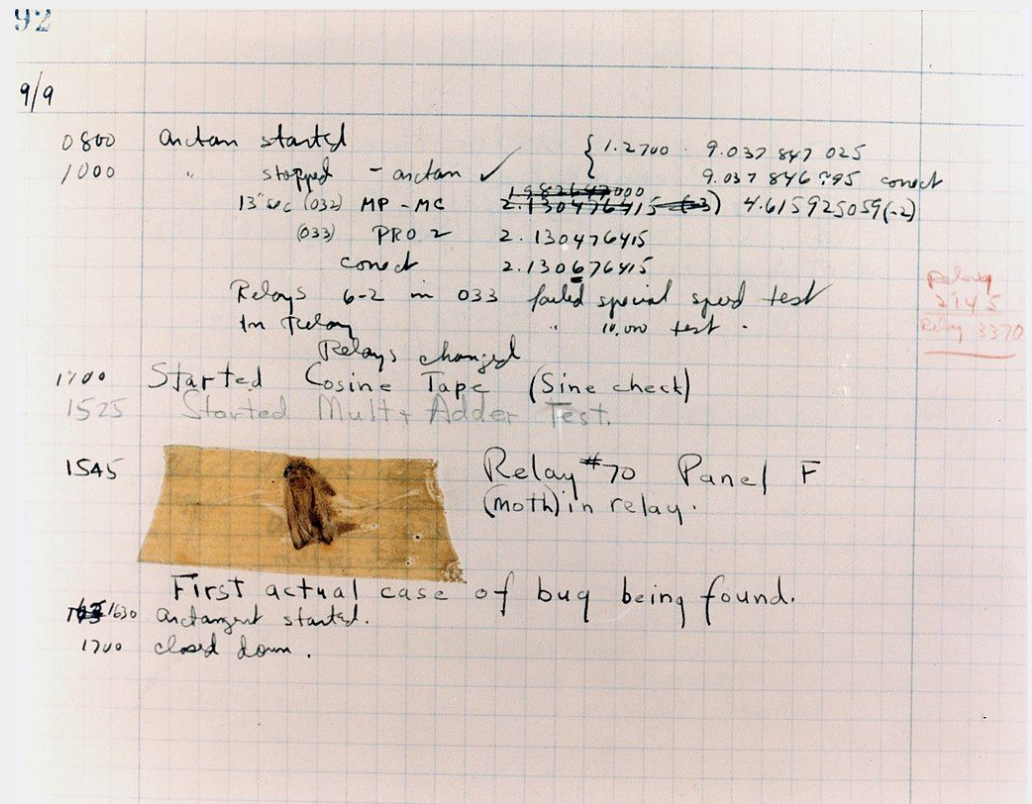 92
9/9
0800 arctan started { 1.2700 · 9.037 847 025
1000 " stopped - arctan ✓ 9.037 846 995 correct
13"sec (032) MP - MC 1.982647000
2.130476415 (-3) 4.615925059(-2)
(033) PRO 2 2.130476415
correct 2.130676415
Relays 6-2 in 033 failed special speed test
In Relay " 10,000 test .
Relays changed
Relay
2145
Relay 3370
1700 Started Cosine Tape (Sine check)
1525 Started Mult + Adder Test.
1545 Relay #70 Panel F
(moth) in relay.
First actual case of bug being found.
1630 arctangent started.
1700 closed down .